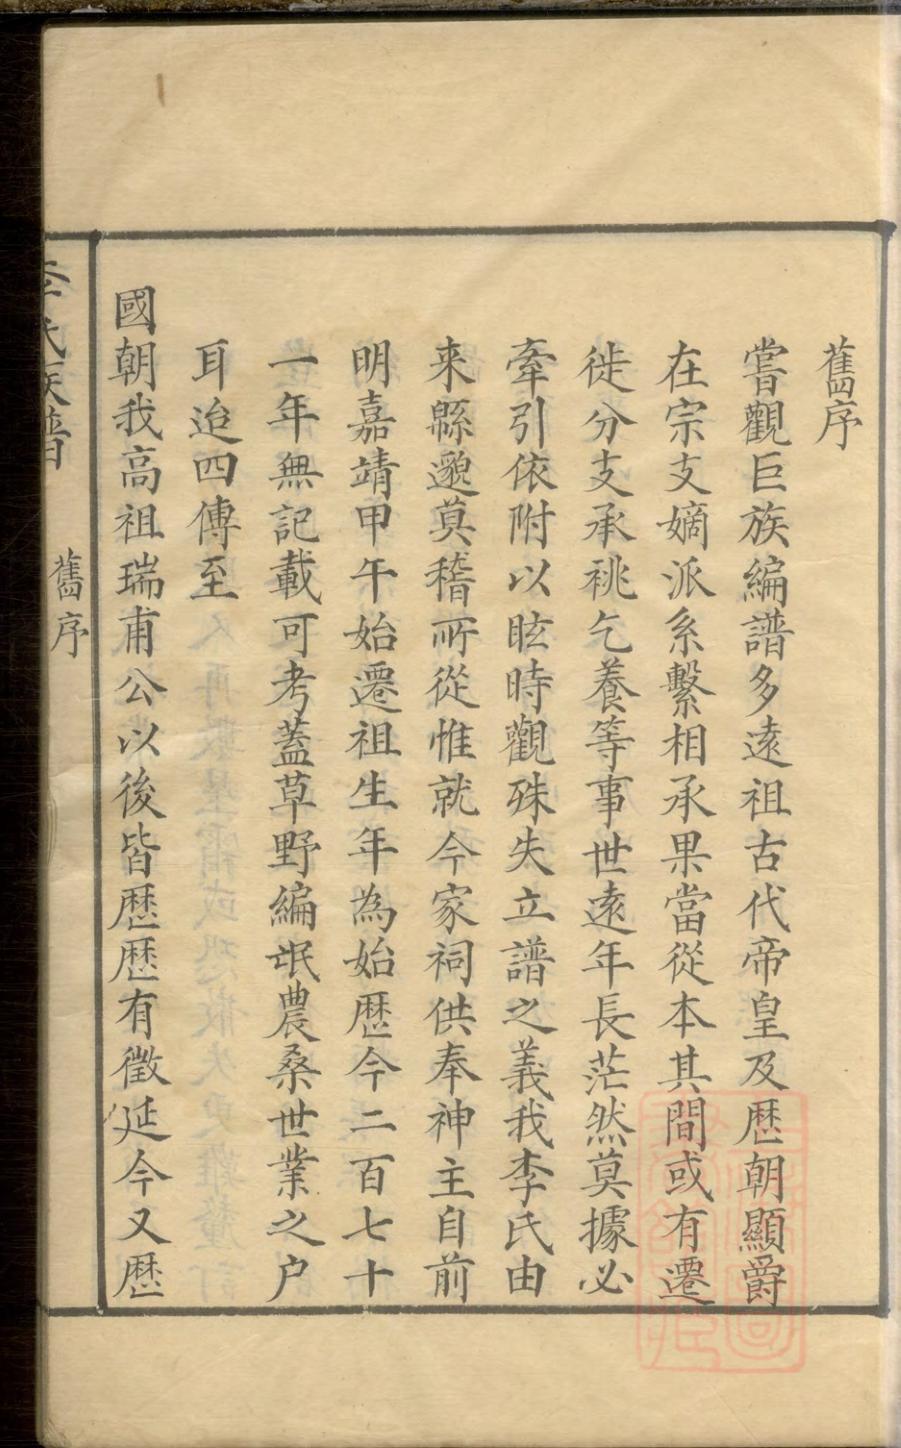 舊序
嘗觀巨族編譜多遠祖古代帝皇及歷朝顯爵
在宗支嫡派系繫相承果當從本其間或有遷
徙分支承祧乞養等事世遠年長茫然莫據必
牽引依附以眩時觀殊失立譜之義我李氏由
来緜邈莫稽所從惟就今家祠供奉神主自前
明嘉靖甲午始遷祖生年為始歷今二百七十
一年無記載可考蓋草野編氓農桑世業之户
耳迨四傳至
國朝我高祖瑞甫公以後皆歷歷有徵延今又歷
李氏族譜
舊序